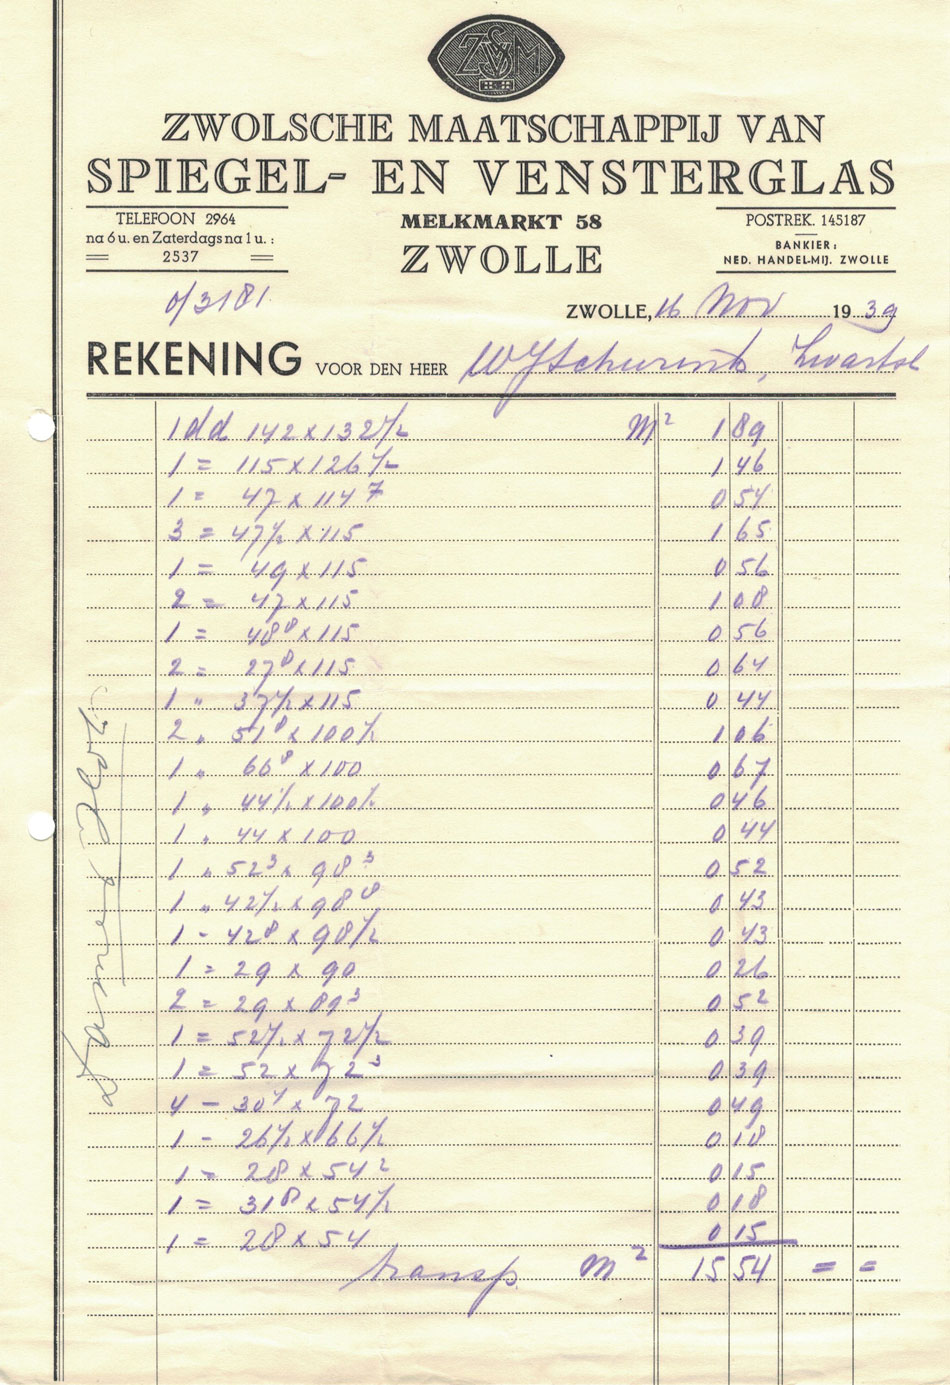 ZVSM
ZWOLSCHE MAATSCHAPPIJ VAN
SPIEGEL- EN VENSTERGLAS
TELEFOON 2964
na 6 u. en Zaterdags na 1 u. :
2537
MELKMARKT 58
ZWOLLE
POSTREK. 145187
BANKIER:
NED. HANDEL-MIJ. ZWOLLE
o/3181
ZWOLLE, 16 Nov 1939
REKENING VOOR DEN HEER WJSchurink,
1 dd 142 x 132 1/2 M² 1 89
1 = 115 x 126 1/2 1 46
1 = 47 x 114 7 0 54
3 = 47 1/2 x 115 1 65
1 = 49 x 115 0 56
2 = 47 x 115 1 08
1 = 48 8 x 115 0 56
2 = 27 8 x 115 0 64
1 " 37 1/2 x 115 0 44
2 " 51 8 x 100 1/2 1 06
1 " 66 8 x 100 0 67
1 " 44 1/2 x 100 1/2 0 46
1 " 44 x 100 0 44
1 " 52 3 x 98 3 0 52
1 " 42 1/2 x 98 8 0 43
1 - 42 8 x 98 1/2 0 43
1 = 29 x 90 0 26
2 = 29 x 89 3 0 52
1 = 52 1/2 x 72 1/2 0 39
1 = 52 x 72 3 0 39
4 - 30 x 72 0 49
1 - 26 1/2 x 66 1/2 0 18
1 = 28 x 54 2 0 15
1 = 31 8 x 54 1/2 0 18
1 = 28 x 54 0 15
transp. M² 15 54 = =